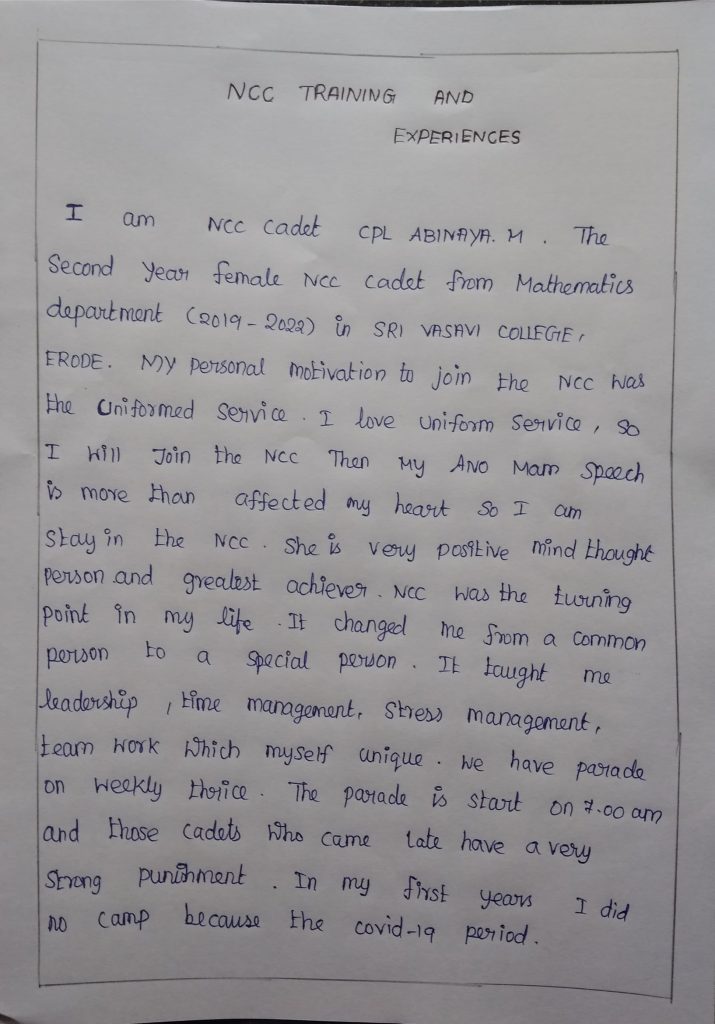 NCC TRAINING AND
EXPERIENCES
I am NCC Cadet CPL ABINAYA. M . The
Second year female NCC cadet from Mathematics
department (2019-2022) in SRI VASAVI COLLEGE,
ERODE. My personal motivation to join the NCC was
the Uniformed Service . I love uniform Service, so
I will Join the NCC Then My ANO Mam Speech
is more than affected my heart so I am
Stay in the NCC . She is very positive mind thought
person and greatest achiever. NCC was the turning
point in my life . It changed me from a common
person to a special person . It taught me
leadership , time management, stress management,
team work which myself unique . we have parade
on weekly thrice . The parade is start on 7.00 am
and those cadets who came late have a very
Strong punihment . In my first years I did
no camp because the covid-19 period .